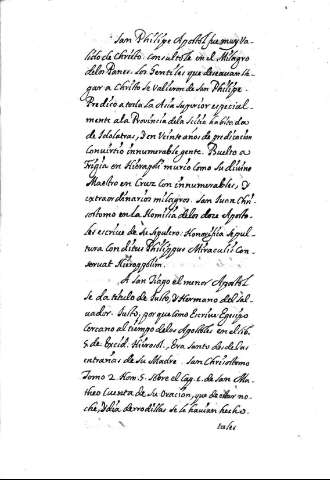 San Phelipe Apostol fue muy va-
lido de Christo. Consultole en el Milagro
delos Panes. Los Gentiles que deseavan lle-
gar a Christo se valieron de san Phelipe.
Predico a toda la Asia Superior especial-
mente ala Provincia dela Scitia habitada
de Idolatras, y en Veinte años de predicacion
Convirtio innumerable gente. Buelto a
Frigia en Hierapoli murio como su divino
Maestro en Cruz con innumerables, y
extraordinarios milagros. San Juan Chri-
sostomo en la Homilia delos doze Aposto-
les escrive de su sepulcro. Honorifica sepul-
tura Conditus Philippus Miraculis Con-
servat Hieropolim.
A San Tiago el menor Apostol
se da titulo de Justo, y Hermano del Sal-
vador. Justo, porque como Escrive Egesipo
Cercano al tiempo delos Apostoles en el lib.
5. de Excid. Hierosol. Era santo desde las
entrañas de su Madre. San Chrisostomo
Tomo 2. Hom. 5. sobre el Cap. 1. de San Ma-
theo Cuenta de su Oracion, que de estar no-
che, y dia de rodillas se le havian hecho
tales